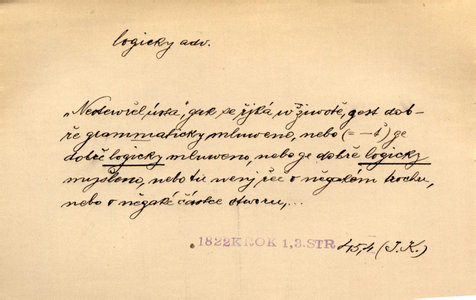 logicky adv.
jak se řjká w žiwotě, gest dob-
ře grammaticky mluweno, nebo (= -i) ge
dobře logicky mluweno, nebo ge dobře logicky
myšleno, nebo tu wenj řeč o něgakém trochu,
nebo o něgaké částce stworu,...
1822KROK 1,3.STR 45,4 (J.K.)